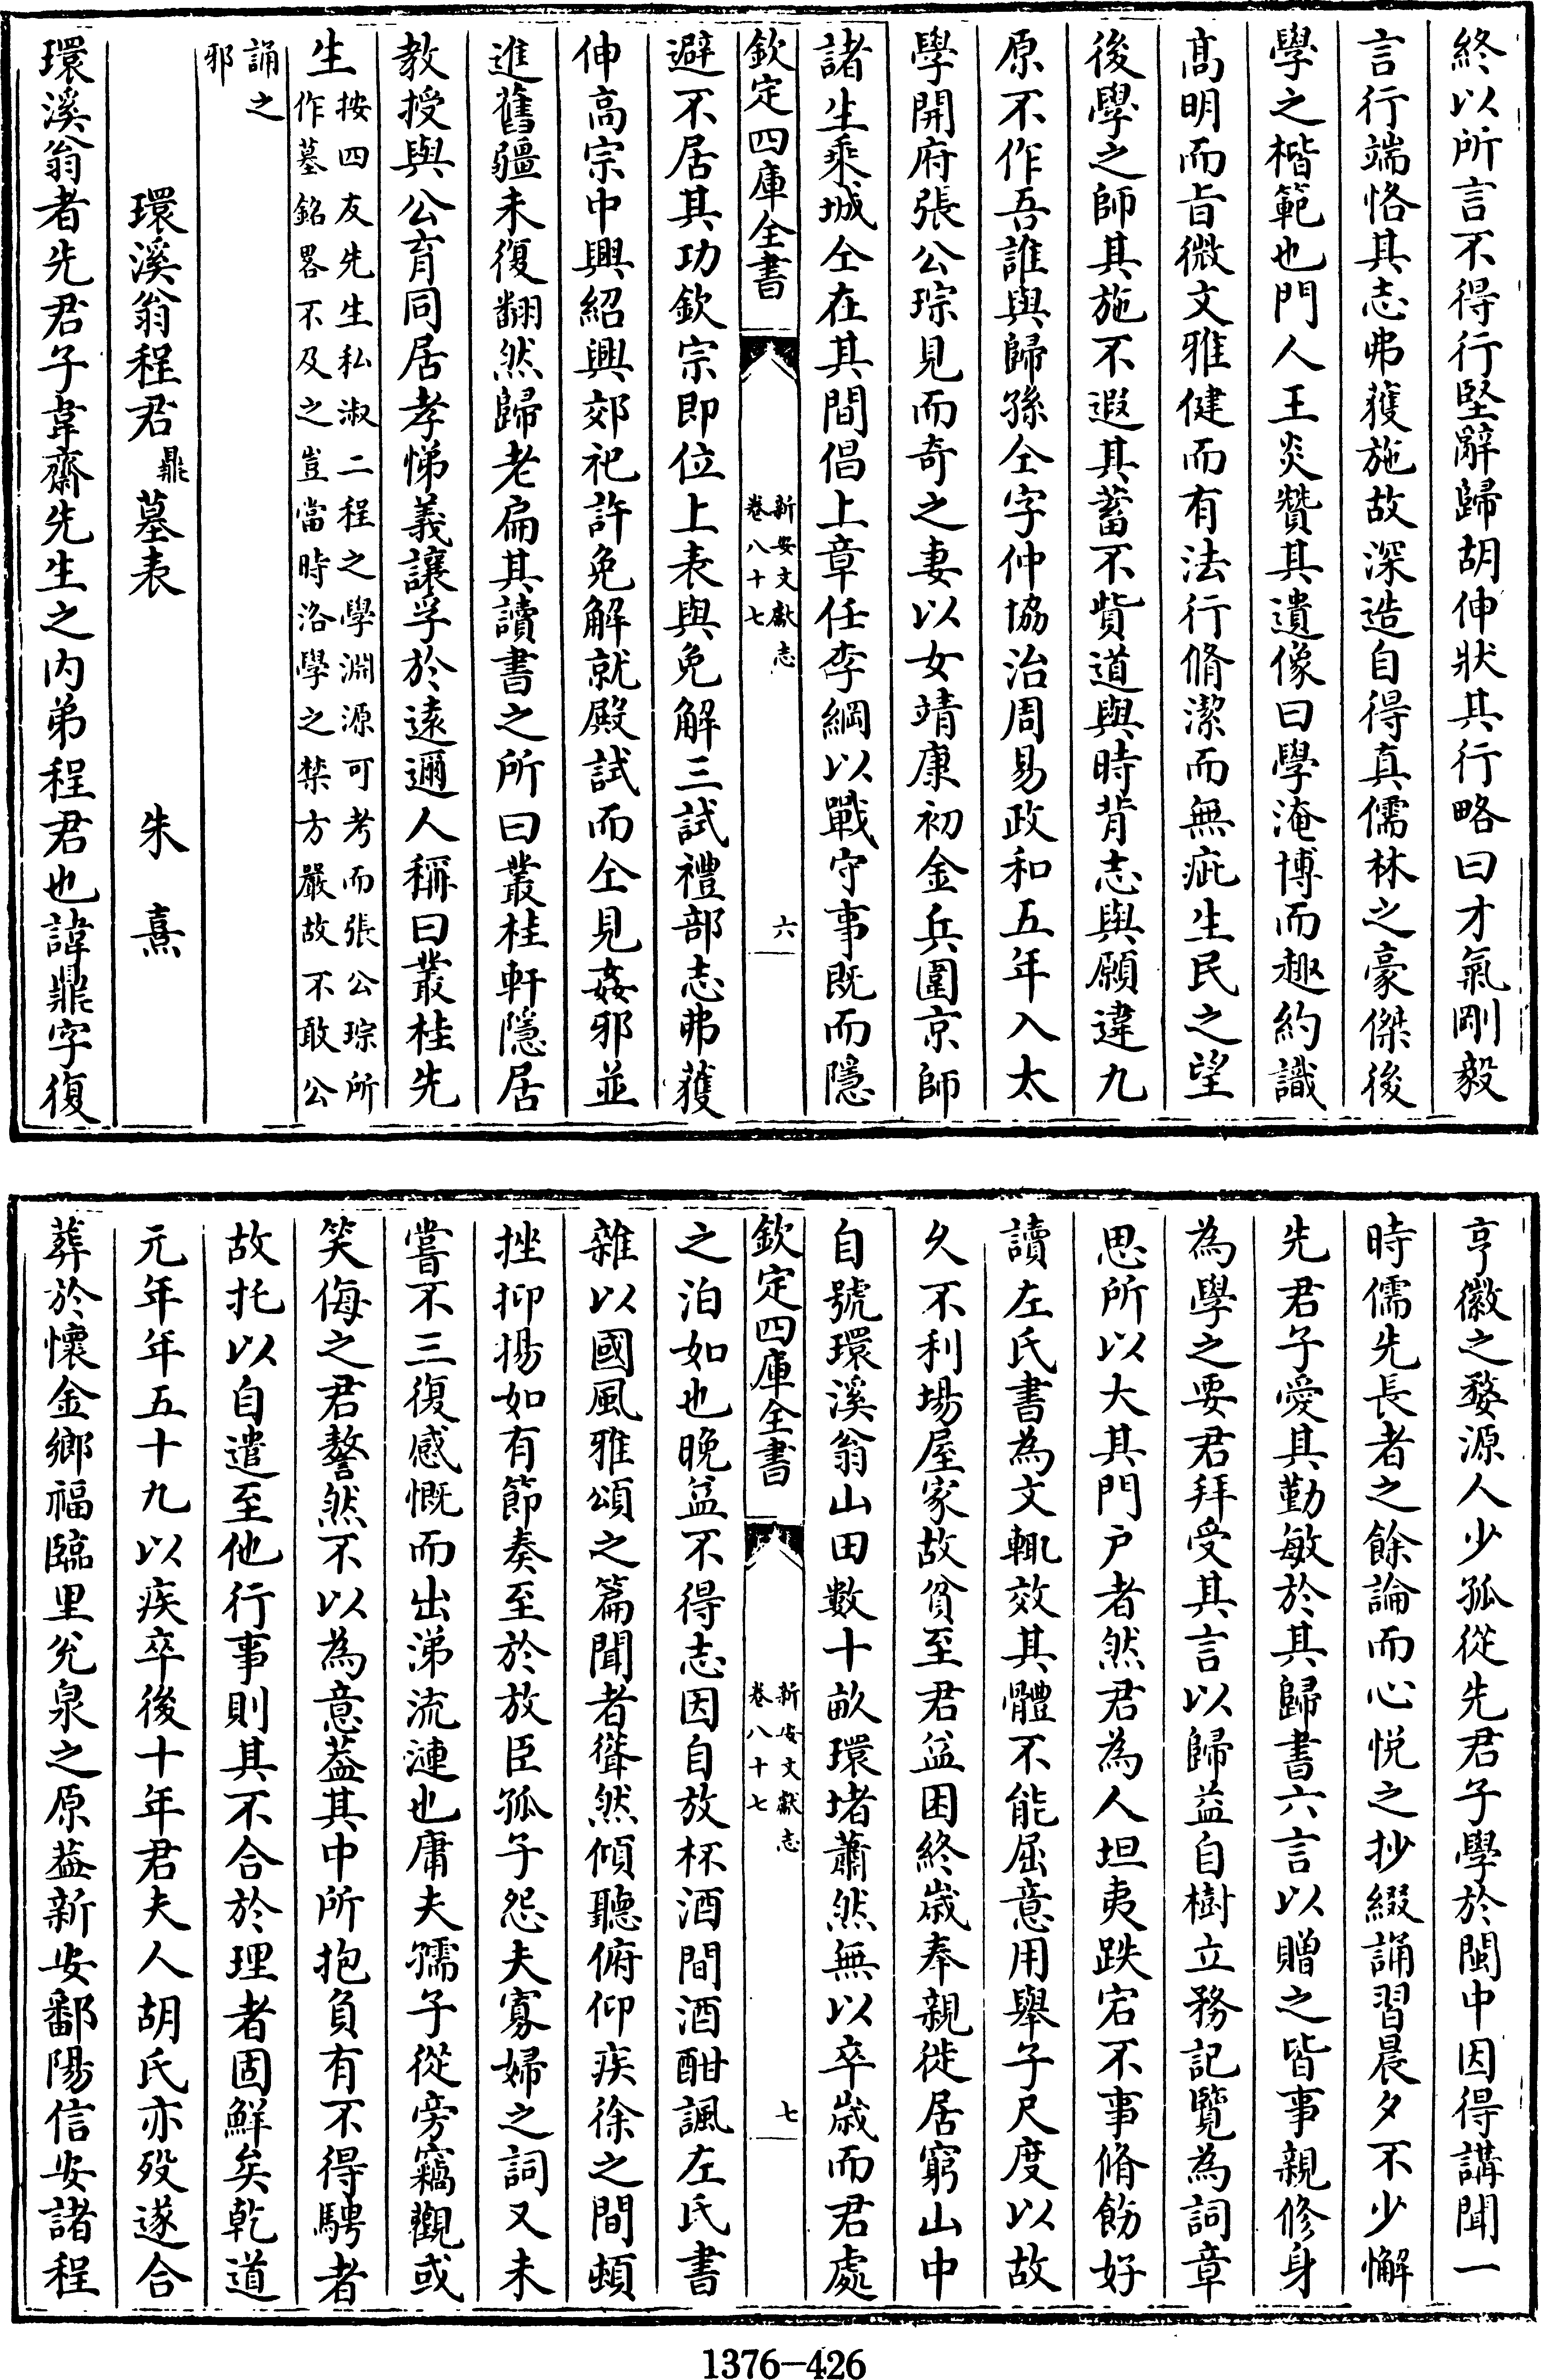 終以所言不得行堅辭歸胡伸狀其行略曰才氣剛毅
言行端恪其志弗獲施故深造自得真儒林之豪傑後
學之楷範也門人王炎贊其遺像曰學淹博而趣約識
髙明而旨微文雅健而有法行脩潔而無疵生民之望
後學之師其施不遐其蓄不貲道與時背志與願違九
原不作吾誰與歸孫仝字仲協治周易政和五年入太
學開府張公琮見而奇之妻以女靖康初金兵圍京師
諸生乘城仝在其間倡上章任李綱以戰守事既而隱
欽定四庫全書
新安文獻志
卷八十七
六
避不居其功欽宗即位上表與免解三試禮部志弗獲
伸高宗中興紹興郊祀許免解就殿試而仝見姦邪並
進舊疆未復翻然歸老扁其讀書之所曰叢桂軒隱居
教授與公育同居孝悌義讓孚於遠邇人稱曰叢桂先
生
按四友先生私淑二程之學淵源可考而張公琮所
作墓銘畧不及之豈當時洛學之禁方嚴故不敢公
誦之
邪
環溪翁程君鼎墓表
朱熹
環溪翁者先君子韋齋先生之内弟程君也諱鼎字復
亨徽之婺源人少孤從先君子學於閩中因得講聞一
時儒先長者之餘論而心悦之抄綴誦習晨夕不少懈
先君子愛其勤敏於其歸書六言以贈之皆事親修身
為學之要君拜受其言以歸益自樹立務記覽為詞章
思所以大其門户者然君為人坦夷跌宕不事脩飭好
讀左氏書為文輒效其體不能屈意用舉子尺度以故
久不利場屋家故貧至君益困終歲奉親徙居窮山中
自號環溪翁山田數十畝環堵蕭然無以卒歲而君處
欽定四庫全書
新安文獻志
卷八十七
七
之泊如也晚益不得志因自放杯酒間酒酣諷左氏書
雜以國風雅頌之篇聞者聳然傾聽俯仰疾徐之間頓
挫抑揚如有節奏至於放臣孤子怨夫寡婦之詞又未
嘗不三復感慨而出涕流漣也庸夫孺子從旁竊觀或
笑侮之君謷然不以為意葢其中所抱負有不得騁者
故托以自遣至他行事則其不合於理者固鮮矣乾道
元年年五十九以疾卒後十年君夫人胡氏亦歿遂合
葬於懷金鄉福臨里兊泉之原葢新安鄱陽信安諸程
1376-426